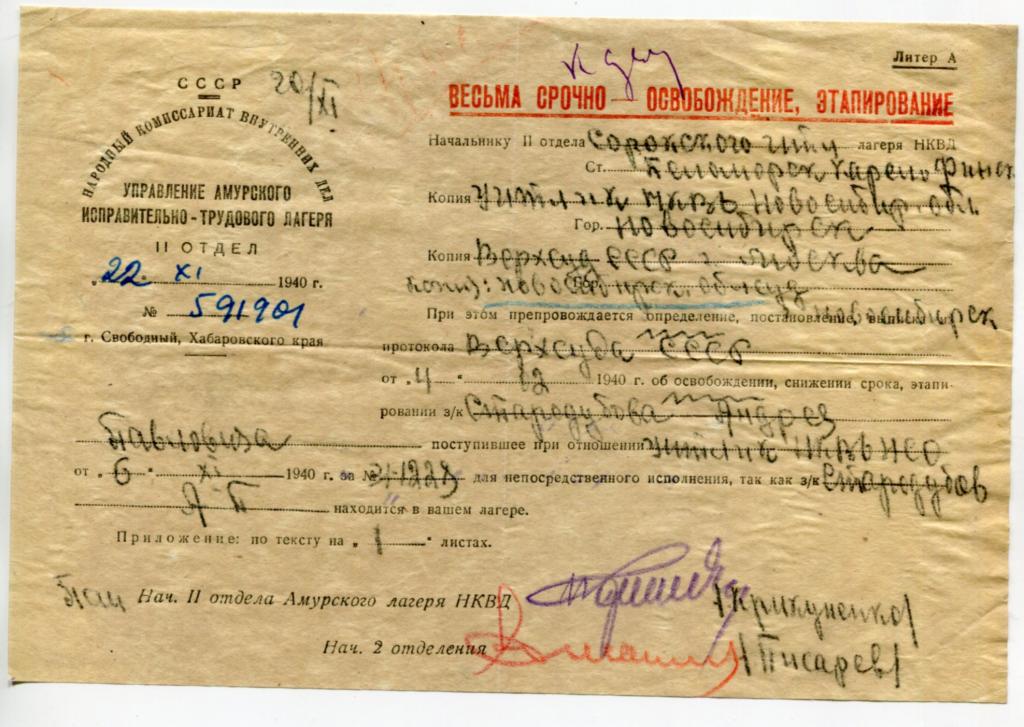 СССР
20/XI
НАРОДНЫЙ КОМИССАРИАТ ВНУТРЕННИХ ДЕЛ
УПРАВЛЕНИЕ АМУРСКОГО
ИСПРАВИТЕЛЬНО-ТРУДОВОГО ЛАГЕРЯ
II ОТДЕЛ
„22" XI 1940 г.
№ 591901
г. Свободный, Хабаровского края
Литер А
к делу
ВЕСЬМА СРОЧНО — ОСВОБОЖДЕНИЕ, ЭТАПИРОВАНИЕ
Начальнику II отдела Сорокского лагеря НКВД
Ст. Беломорск Карело Финск
Копия УИТЛиК НКВД Новосибир. обл.
Гор. Новосибирск
Копия Верхсуд СССР г. Москва
Копия: Новосибирск. обл суд
Новосибирск
При этом препровождается определение, постановление, выписка
протокола Верхсуда СССР
от „4" 1940 г. об освобождении, снижении срока, этапи-
ровании з/к Стародубова Андрея
Павловича поступившее при отношении УИТЛиК НКВД НСО
от „6" XI 1940 г. за № для непосредственного исполнения, так как з/к Стародубов
А П находится в вашем лагере.
Приложение: по тексту на „1" листах.
Нач. II отдела Амурского лагеря НКВД /Крикуненко/
Нач. 2 отделения /Писарев/